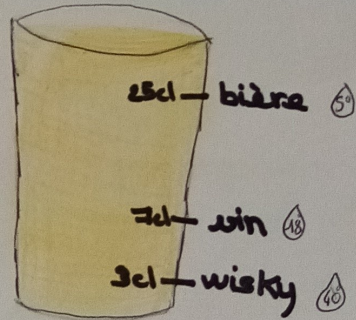 25cl — bière 5°
7cl — vin 18
3cl — wisky 40